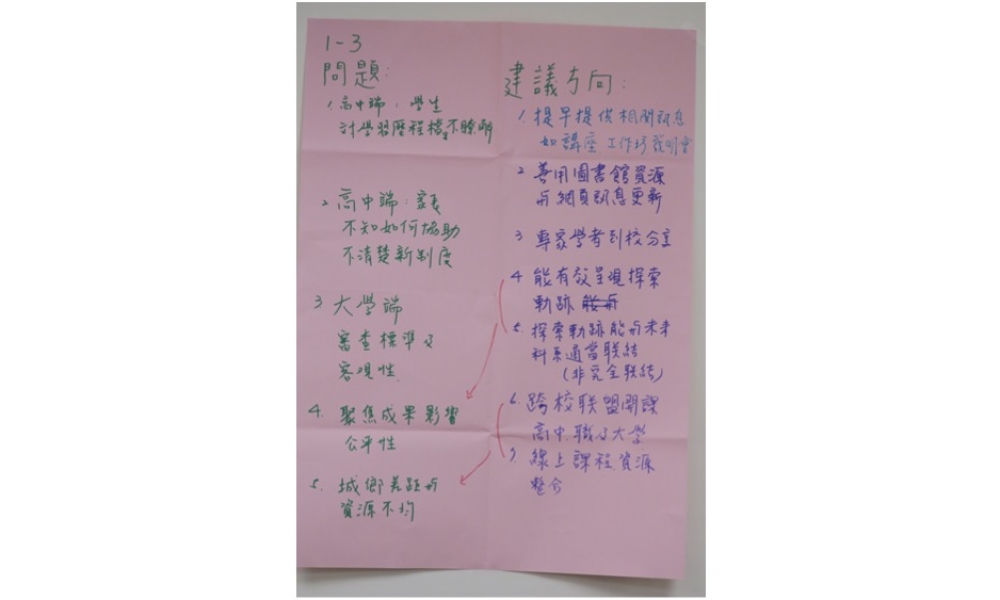 1-3
問題:
1. 高中端:學生
對學習歷程檔案不瞭解
2. 高中端:家長
不知如何協助
不清楚新制度
3 大學端
審查標準及
客觀性
4. 聚焦成果影響
公平性
5. 城鄉差距与
資源不均
建議方向:
1. 提早提供相關訊息
如講座 工作坊 說明會
2 善用圖書館資源
与網頁訊息更新
3 專家學者到校分享
4 能有效呈現探索
軌跡
5. 探索軌跡能与未来
科系適當联結
(非完全联結)
6. 跨校联盟開課
高中.職及大學
7. 線上課程資源
整合